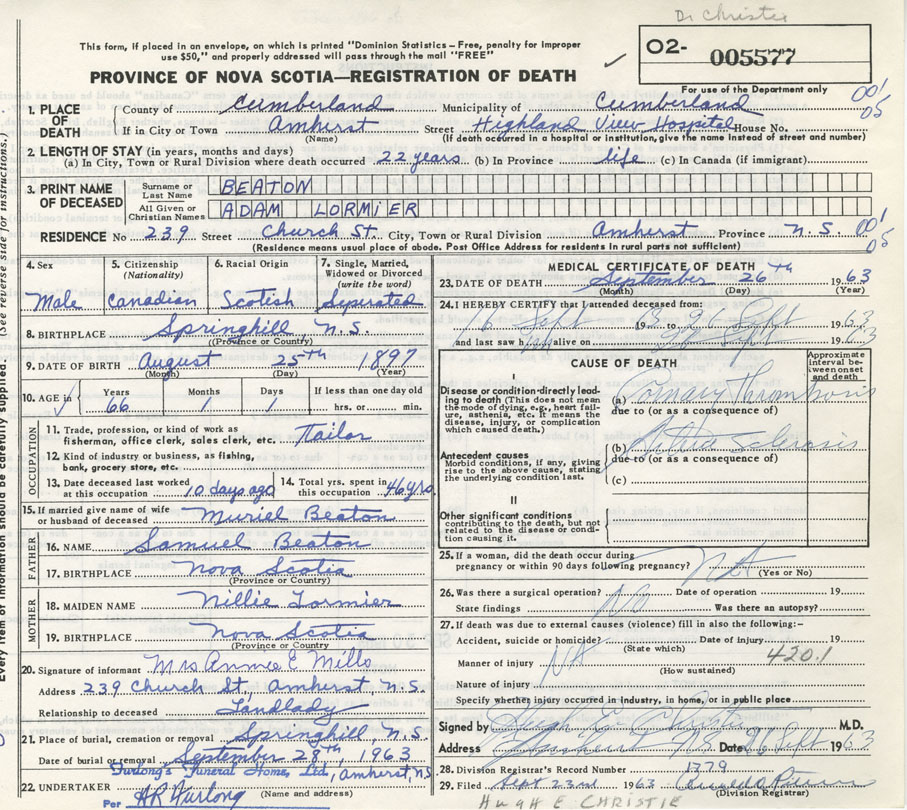 Dr Christie
This form, if placed in an envelope, on which is printed "Dominion Statistics - Free, penalty for improper
use $50," and properly addressed will pass through the mail "FREE"
✓
O2- 005577
For use of the Department only
PROVINCE OF NOVA SCOTIA—REGISTRATION OF DEATH
001
05
1. PLACE OF DEATH
County of Cumberland Municipality of Cumberland
If in City or Town Amherst Street Highland View Hospital House No.
(Name) (If death occurred in a hospital or institution, give the name instead of street and number)
2. LENGTH OF STAY (in years, months and days)
(a) In City, Town or Rural Division where death occurred 22 years (b) In Province life (c) In Canada (if immigrant)
3. PRINT NAME OF DECEASED
Surname or Last Name BEATON
All Given or Christian Names ADAM LORMIER
RESIDENCE No 239 Street Church St. City, Town or Rural Division Amherst Province N.S.
001
05
(Residence means usual place of abode. Post Office Address for residents in rural parts not sufficient)
4. Sex Male
5. Citizenship (Nationality) Canadian
6. Racial Origin Scotish
7. Single, Married, Widowed or Divorced (write the word) Seperated
8. BIRTHPLACE Springhill, N.S.
(Province or Country)
9. DATE OF BIRTH August 25th 1897
(Month) (Day) (Year)
10. AGE in Years 66 Months 1 Days 1 If less than one day old hrs. or min.
OCCUPATION
11. Trade, profession, or kind of work as fisherman, office clerk, sales clerk, etc. Tailor
12. Kind of industry or business, as fishing, bank, grocery store, etc.
13. Date deceased last worked at this occupation 10 days ago
14. Total yrs. spent in this occupation 46 yrs
15. If married give name of wife or husband of deceased Muriel Beaton
FATHER
16. NAME Samuel Beaton
17. BIRTHPLACE Nova Scotia
(Province or Country)
MOTHER
18. MAIDEN NAME Nillie Lormier
19. BIRTHPLACE Nova Scotia
(Province or Country
20. Signature of informant Mrs Annie E Mills
Address 239 Church St, Amherst, N.S.
Relationship to deceased Landlady
21. Place of burial, cremation or removal Springhill, N.S.
Date of burial or removal September 28th, 1963
22. UNDERTAKER Furlong's Funeral Home, Ltd., Amherst, N.S
(Name and address)
Per HR Furlong
Every item of information should be carefully supplied. (See reverse side for instructions.)
MEDICAL CERTIFICATE OF DEATH
23. DATE OF DEATH September 26th 1963
(Month) (Day) (Year)
24. I HEREBY CERTIFY that I attended deceased from:
16 Sept 1963 26 Sept 1963
and last saw h alive on 26 Sept 1963
CAUSE OF DEATH
Approximate interval between onset and death
I
Disease or condition directly leading to death (This does not mean the mode of dying, e.g., heart failure, asthenia, etc. It means the disease, injury, or complication which caused death.)
(a) Coronary Thrombosis
due to (or as a consequence of)
Antecedent causes
Morbid conditions, if any, giving rise to the above cause, stating the underlying condition last.
(b) Sclerosis
due to (or as a consequence of)
(c)
II
Other significant conditions contributing to the death, but not related to the disease or condition causing it.
25. If a woman, did the death occur during pregnancy or within 90 days following pregnancy? NA
(Yes or No)
26. Was there a surgical operation? No Date of operation 19
State findings Was there an autopsy?
27. If death was due to external causes (violence) fill in also the following:-
Accident, suicide or homicide? Date of injury 19
(State which)
Manner of injury NA 420.1
(How sustained)
Nature of injury
Specify whether injury occurred in industry, in home, or in public place
Signed by Hugh E Christie M.D.
Address Amherst NS Date 26 Sept 1963
28. Division Registrar's Record Number 1379
29. Filed Sept 23rd 1963
(Division Registrar)
HUGH E CHRISTIE